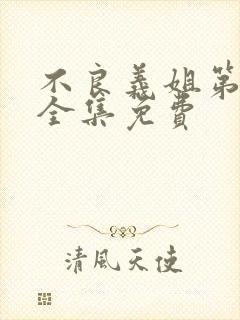 不良義姐第
全集免費
清風天使